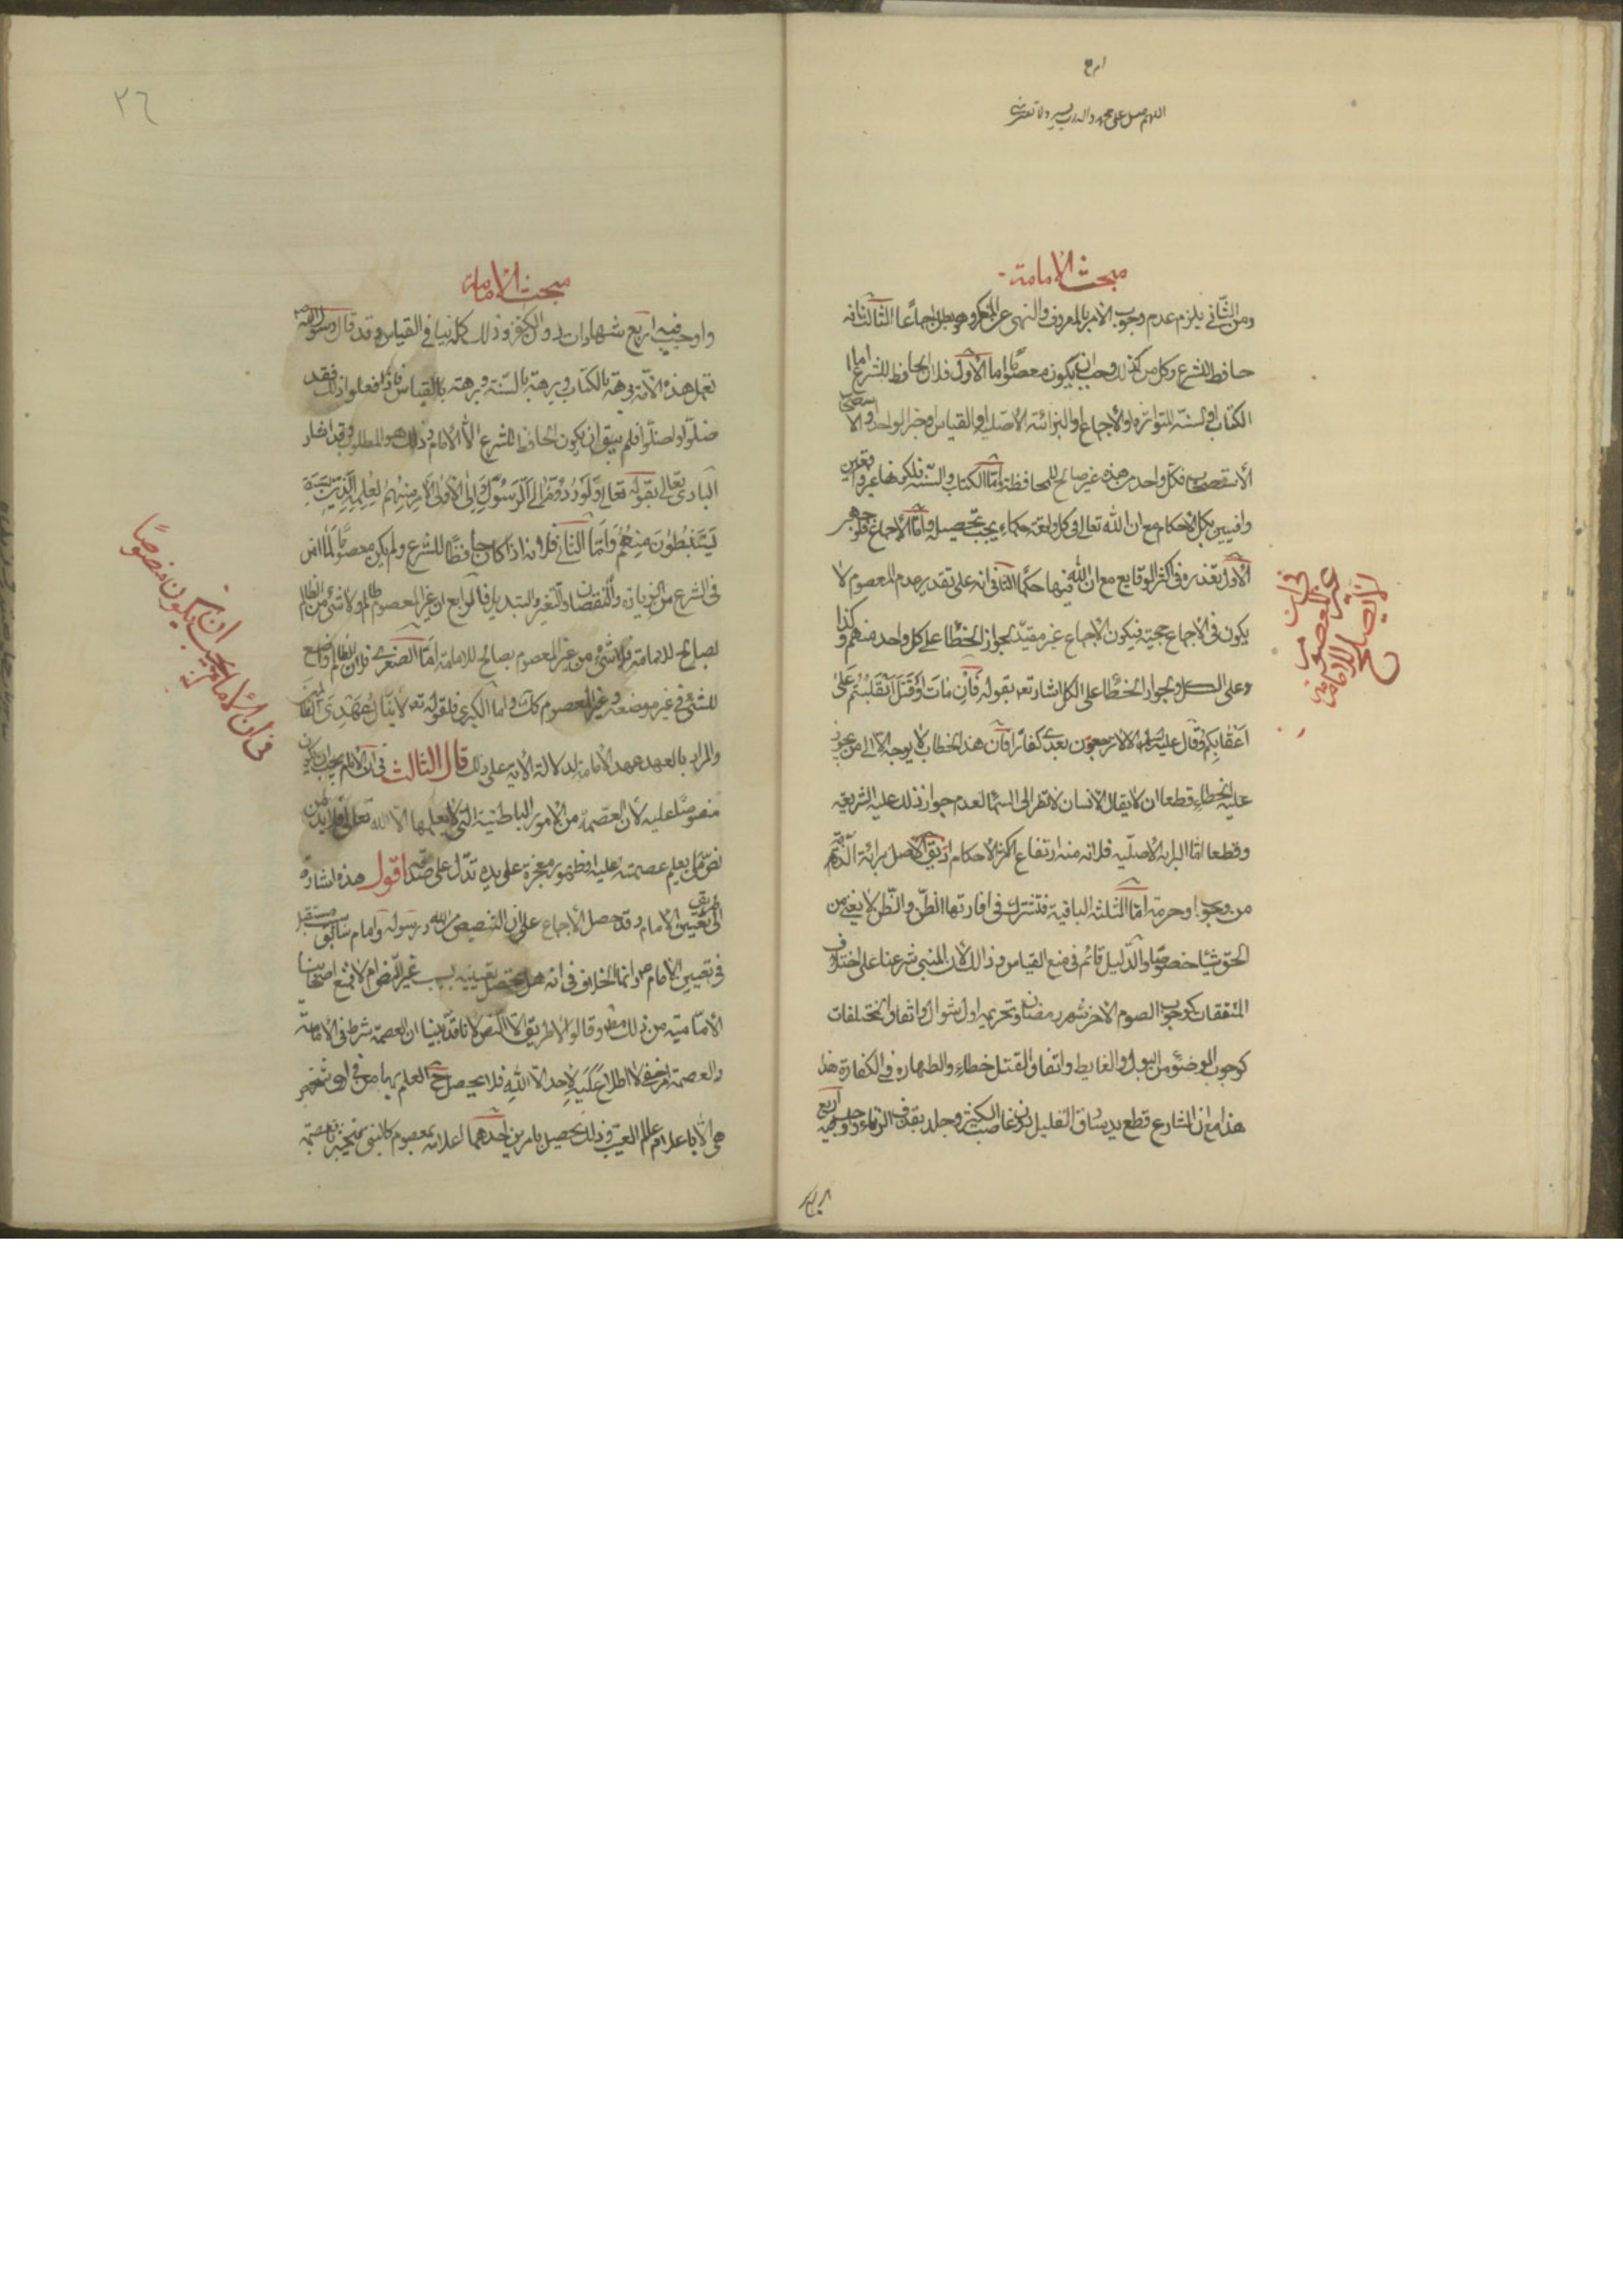 اللهم صل على محمد وآله رب يسر ولا تعسر
مبحث الامامة
ومن الثاني يلزم عدم وجوب الامر بالمعروف والنهى عن المنكر وهو بط اجماعا الثالث انه
حافظ للشرع وكل من كذلك وجب ان يكون معصوما اما الاول فلان الحافظ للشرع اما
الكتاب والسنة المتواترة والاجماع او البرائة الاصلية او القياس او خبر الواحد والا
الاستصحاب فكل واحد من هذه غير صالح للمحافظة اما الكتاب والسنة فلكونهما غير
وافيين بكل الاحكام مع ان الله تعالى فى كل واقعة حكماء يجب تحصيله واما الاجماع فلوجهين
الاول تعذره فى اكثر الوقايع مع ان الله فيها حكما الثانى انه على تقدير عدم المعصوم لا
يكون فى الاجماع حجية فيكون الاجماع غير مقيد لجواز الخطا على كل واحد منهم وكذا
وعلى الكل ولجواز الخطا على الكل اشار تع بقوله فان مات او قتل انقلبتم على
اعقابكم وقال عليه السلم الا لا ترجعون بعدى كفارا فان هذا الخطاب لا يوجه الا الى من يجوز
عليه الخطاء قطعا ان لا يقال الانسان لا تطر الى السما لعدم جواز ذلك عليه الشريعة
وقطعا اما البراية الاصلية فلانه منه ارتفاع اكثر الاحكام اذ يق الاصل برائة الذمة
من وجوب او حرمة اما الثلثة الباقية فتشترك فى افادتها الظن والظن لا يغنى من
الحق شيئا خصوصا والدليل قائم فى منع القياس وذلك لان المبنى شرعنا على اختلاف
المتفقات كوجوب الصوم الاخر شهر رمضان وتحريمه اول شوال واتفاق المختلفات
كوجوب الوضوء من البول والغايط واتفاق القتل خطاء والطهارة فى الكفارة هذا
هذا مع ان الشارع قطع يد سارق القليل دون غاصب الكثير وجلد بقذف الزناء واوجب فيه اربع
فى ان غير المعصوم لا يصلح الامامة
مبحث الامامة
واوجب فيه اربع شهادات دون الكفر وذلك كله ينافى القياس وقد قال رسول الله ص
تعمل هذه الامة برهة بالكتاب وبرهة بالسنة وبرهة بالقياس فاذا فعلوا ذلك فقد
ضلوا واضلوا فلم يبق ان يكون الحافظ للشرع الا الامام وذلك هو المطلوب وقد اشار
البارى تعالى بقوله تعالى ولو ردوه الى الرسول والى اولى الامر منهم لعلمه الذين
يستنبطونه منهم واما الثانى فلانه اذا كان حافظا للشرع ولم يكن معصوما لما امن
فى الشرع من الزيادة والنقصان والتغير والتبديل الرابع ان غير المعصوم ظالم ولا شئ من الظالم
بصالح للامامة فلا شئ من غير المعصوم بصالح للامامة اما الصغرى فلان الظالم واضع
للشئ فى غير موضعه وغير المعصوم كك واما الكبرى فلقوله تع لا ينال عهدى الظالمين
والمراد بالعهد عهد الامامة لدلالة الاية على ذلك قال الثالث فى ان الامام يجب ان يكون
منصوصا عليه لان العصمة من الامور الباطنية التى لا يعلمها الا الله تعالى فلا بد من
نص من يعلم عصمته عليه او ظهور معجزة على يده تدل على صدقه اقول هذه اشارة
الى طريق تعيين الامام وقد حصل الاجماع على ان التنصيص من الله ورسوله وامام سابق مستقبل
فى تعيين الامام ص وانما الخلاف فى انه هل يحصل تعيينه بسبب غير النص ام لا فمنع اصحابنا
الامامية من ذلك مط وقالوا لا طريق الا النص لانا قد بينا ان العصمة شرط فى الامامة
والعصمة امر خفى لا اطلاع عليه لاحد الا الله فلا يحصل ح العلم بها من فى اى شخص
هى الا باعلام عالم الغيب وذلك يحصل بامرين احدهما اعلامه بمعصوم كالنبى ص فيخبرنا بعصمته
فى ان الامام يجب ان يكون منصوصا
٣٦